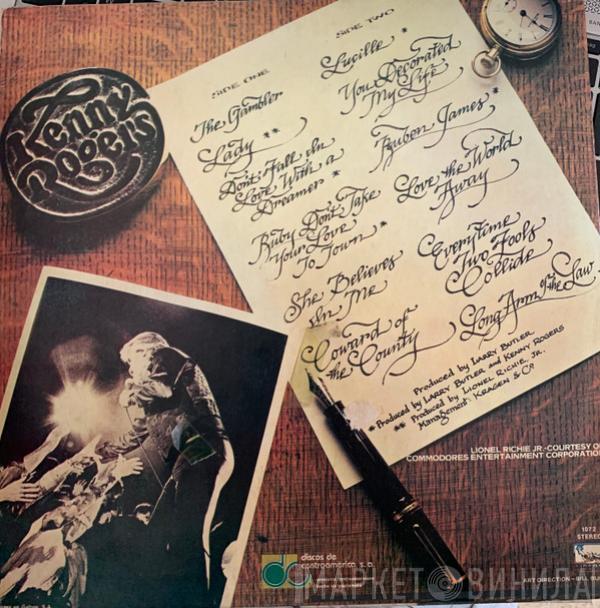 Kenny
Rogers
SIDE ONE
The Gambler
Lady **
Don't Fall In
Love With a
Dreamer *
Ruby Don't Take
Your Love
To Town *
She Believes
In Me
Coward of
the County
SIDE TWO
Lucille *
You Decorated
My Life
Reuben James *
Love the World
Away
Everytime
Two Fools
Collide
Long Arm of the Law
Produced by LARRY BUTLER
* Produced by LARRY BUTLER and KENNY ROGERS
** Produced by LIONEL RICHIE, JR.
Management: KRAGEN & CO
LIONEL RICHIE JR.-COURTESY OF
COMMODORES ENTERTAINMENT CORPORATION
1072
STEREO
discos de
centroamerica, s.a.
ART DIRECTION - BILL BU
МАРКЕТ ВИНИЛА